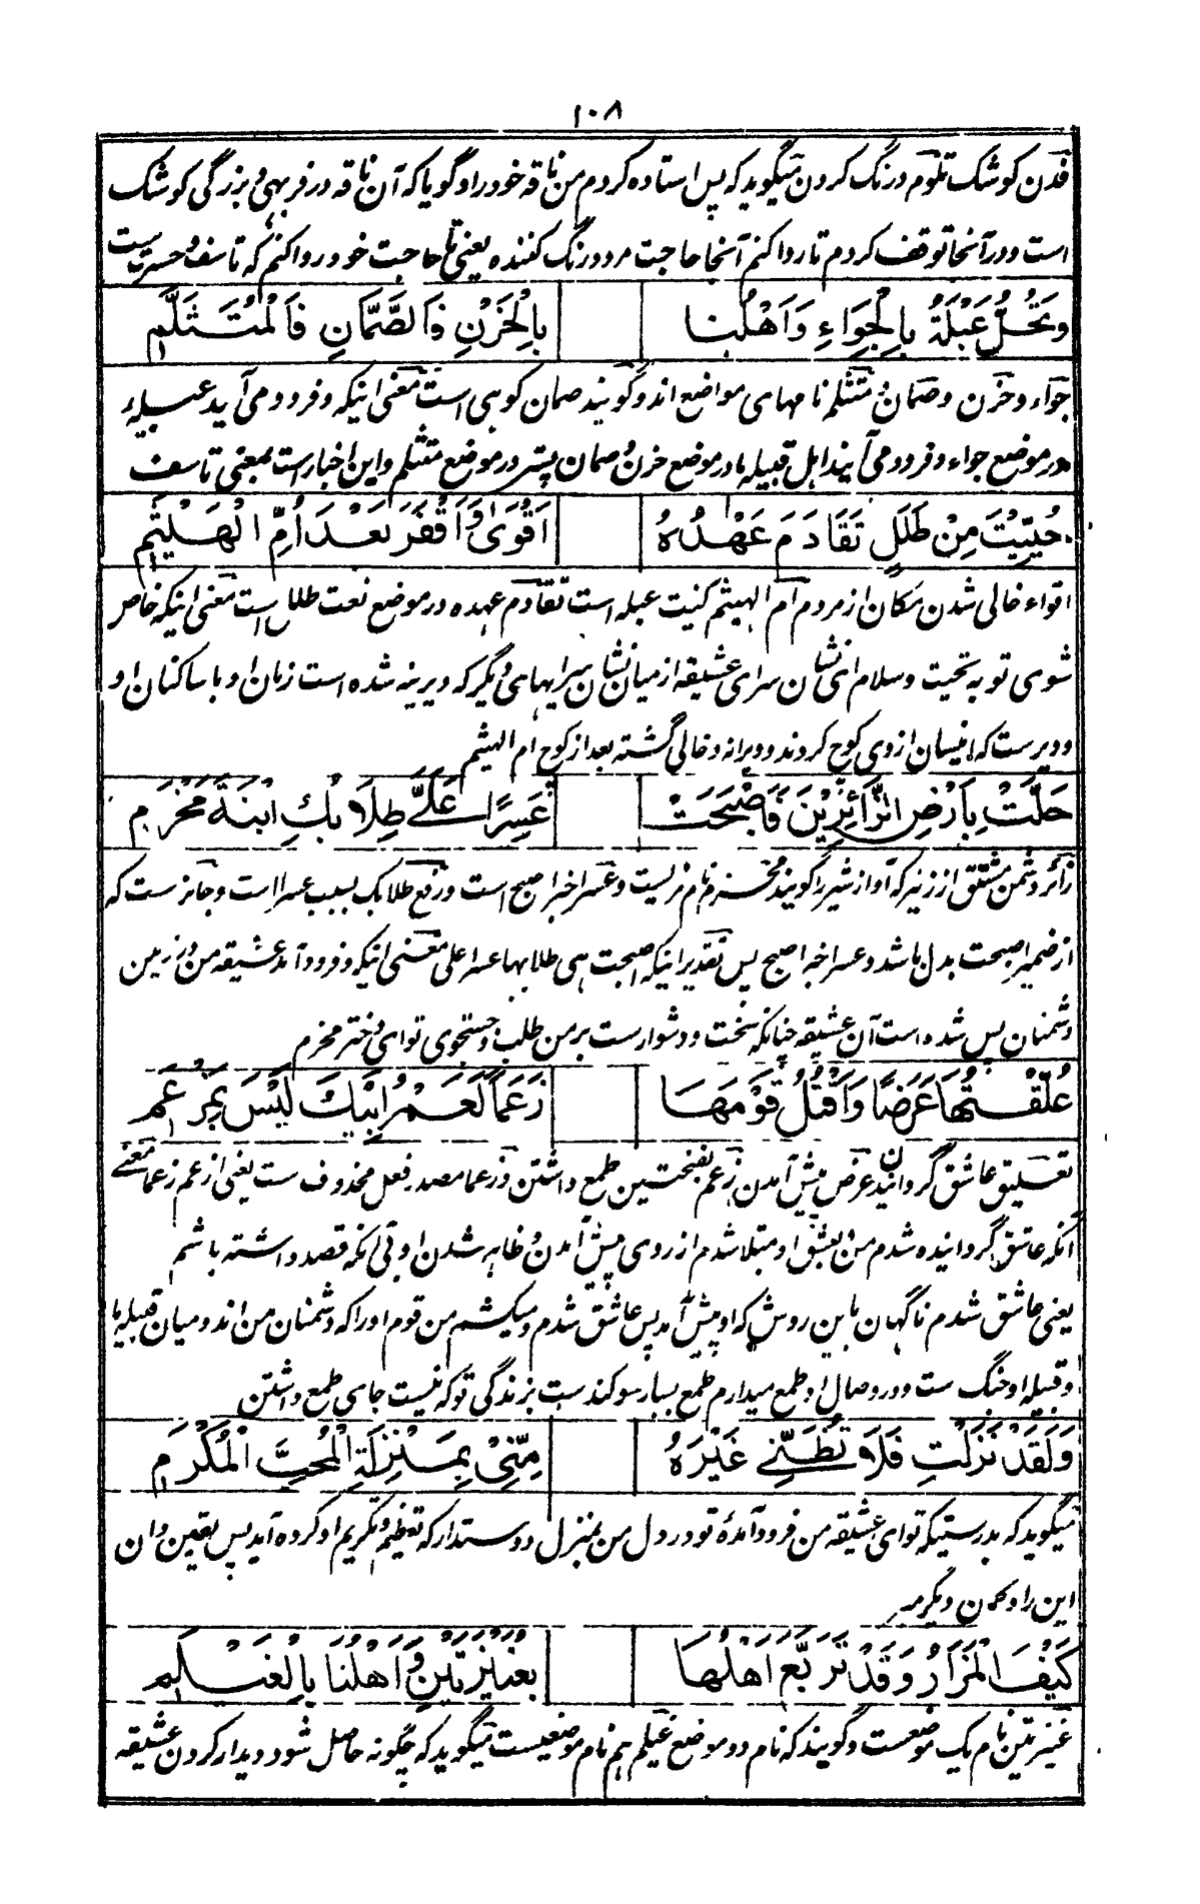 ۱۰۸
فدن کوشک تلوم درنگ کردن میگوید که پس استاده کردم من ناقه خود را و گویا که آن ناقه در فربهی و بزرگی کوشک
است و در آنجا توقف کردم تا روا کنم آنجا حاجت مرد درنگ کننده یعنی تا حاجت خود روا کنم که تاسف و حسرتست
وَتَحُلُّ عَبْلَةُ بِالْجِوَاءِ وَاَهْلُنا بِالْحَزْنِ فَالصَّمَّانِ فَالْمُتَثَلَّمِ
جواء و حزن و صمان و متثلم نامهای مواضع اند و گویند صمان کوهی است معنی اینکه و فرود می آید عبیله
در موضع جواء و فرود می آیند اهل قبیله ما در موضع حزن و صمان پستر در موضع متثلم و این اخبارست بمعنی تاسف
حُيِّيْتَ مِنْ طَلَلٍ تَقَادَمَ عَهْدُهُ اَقْوَىٰ وَاَقْفَرَ بَعْدَ اُمِّ الْهَيْثَمِ
اقواء خالی شدن مکان از مردم ام الهیثم کنیت عبله است تقادم عهده در موضع نعت طلل است معنی اینکه خاص
شوی تو به تحیت و سلام ای نشان سرای عشیقه از میان نشان سرایهای دیگر که دیرینه شده است زمان او با ساکنان او
و دیرست که انیسان از وی کوچ کردند و ویرانه و خالی گشته بعد از کوچ ام الهیثم
حَلَّتْ بِاَرْضِ الزَّائِرِيْنَ فَاَصْبَحَتْ عَسِرًا عَلَيَّ طِلَابُكِ ابْنَةَ مَخْرَمِ
زائر دشمن مشتق از زئیر که آواز شیر را گویند مخرم نام مردیست و عسرا خبر اصبح است و رفع طلابک بسبب عسرا است و جائزست که
از ضمیر اصبحت بدل باشد و عسرا خبر اصبح پس تقدیر اینکه اصبحت هی طلابها عسرا علی معنی اینکه و فرود آمد عشیقه من در زمین
دشمنان پس شده است آن عشیقه چنانکه سخت و دشوارست بر من طلب و جستجوی تو ای دختر مخرم
عُلِّقْتُهَا عَرَضًا وَاَقْتُلُ قَوْمَهَا زَعَمًا لَعَمْرُ اَبِيْكَ لَيْسَ بِمَزْعَمِ
تعلیق عاشق گردانیدن عرض پیش آمدن زعم بفتحتین طمع داشتن و زعما مصدر فعل محذوف ست یعنی ازعم زعما معنی
آنکه عاشق گردانیده شدم من بعشق او مبتلا شدم از روی پیش آمدن و ظاهر شدن او بی آنکه قصد داشته باشم
یعنی عاشق شدم ناگهان باین روش که او پیش آمد پس عاشق شدم و میکشم من قوم او را که دشمنان من اند و میان قبیله ما
و قبیله او جنگ ست و در وصال او طمع میدارم طمع بسیار سوگندست بزندگی تو که نیست جای طمع داشتن
وَلَقَدْ نَزَلْتِ فَلَا تَظُنِّي غَيْرَهُ مِنِّيْ بِمَنْزِلَةِ الْمُحِبِّ الْمُكْرَمِ
میگوید که بدرستیکه تو ای عشیقه من فرود آمدهٔ تو در دل من بمنزل دوستدار که تعظیم و تکریم او کرده آید پس یقین دان
این را و گمان دیگر مبر
كَيْفَ الْمَزَارُ وَقَدْ تَرَبَّعَ اَهْلُهَا بِعُنَيْزَتَيْنِ وَاَهْلُنَا بِالْغَيْلَمِ
عنیزتین نام یک موضعست و گویند که نام دو موضع غیلم هم نام موضعیست میگوید که چگونه حاصل شود دیدار کردن عشیقه